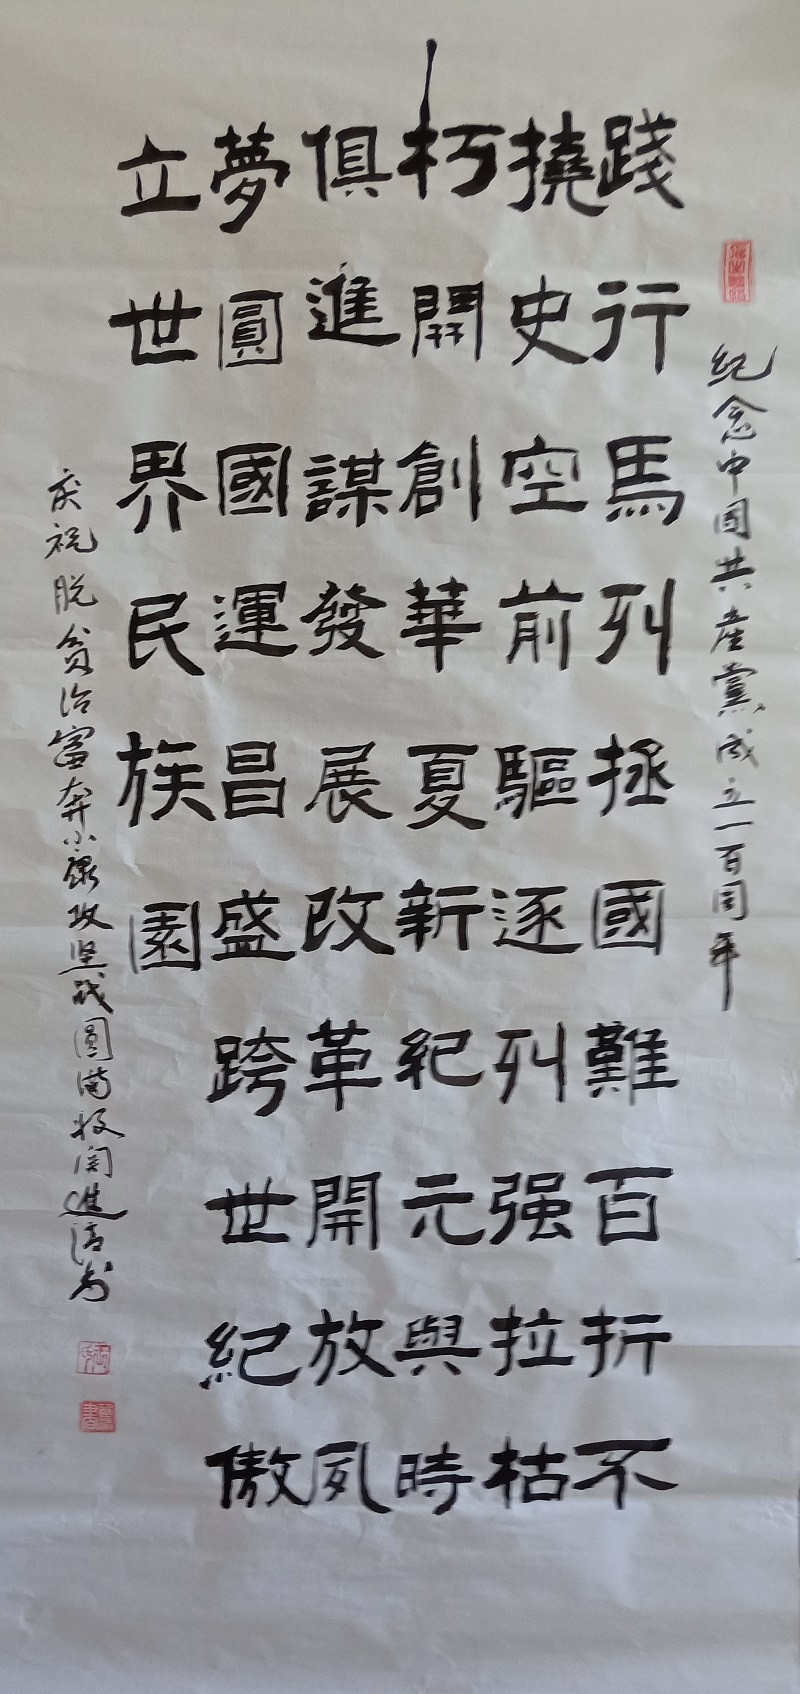 纪念中国共産黨成立一百周年
踐行馬列拯國難百折不
撓史空前驅逐列强拉枯
朽開創華夏新紀元與時
俱進謀發展改革開放夙
夢圓國運昌盛跨世紀傲
立世界民族園
庆祝脱贫治富奔小康攻坚战圆满收関進清书